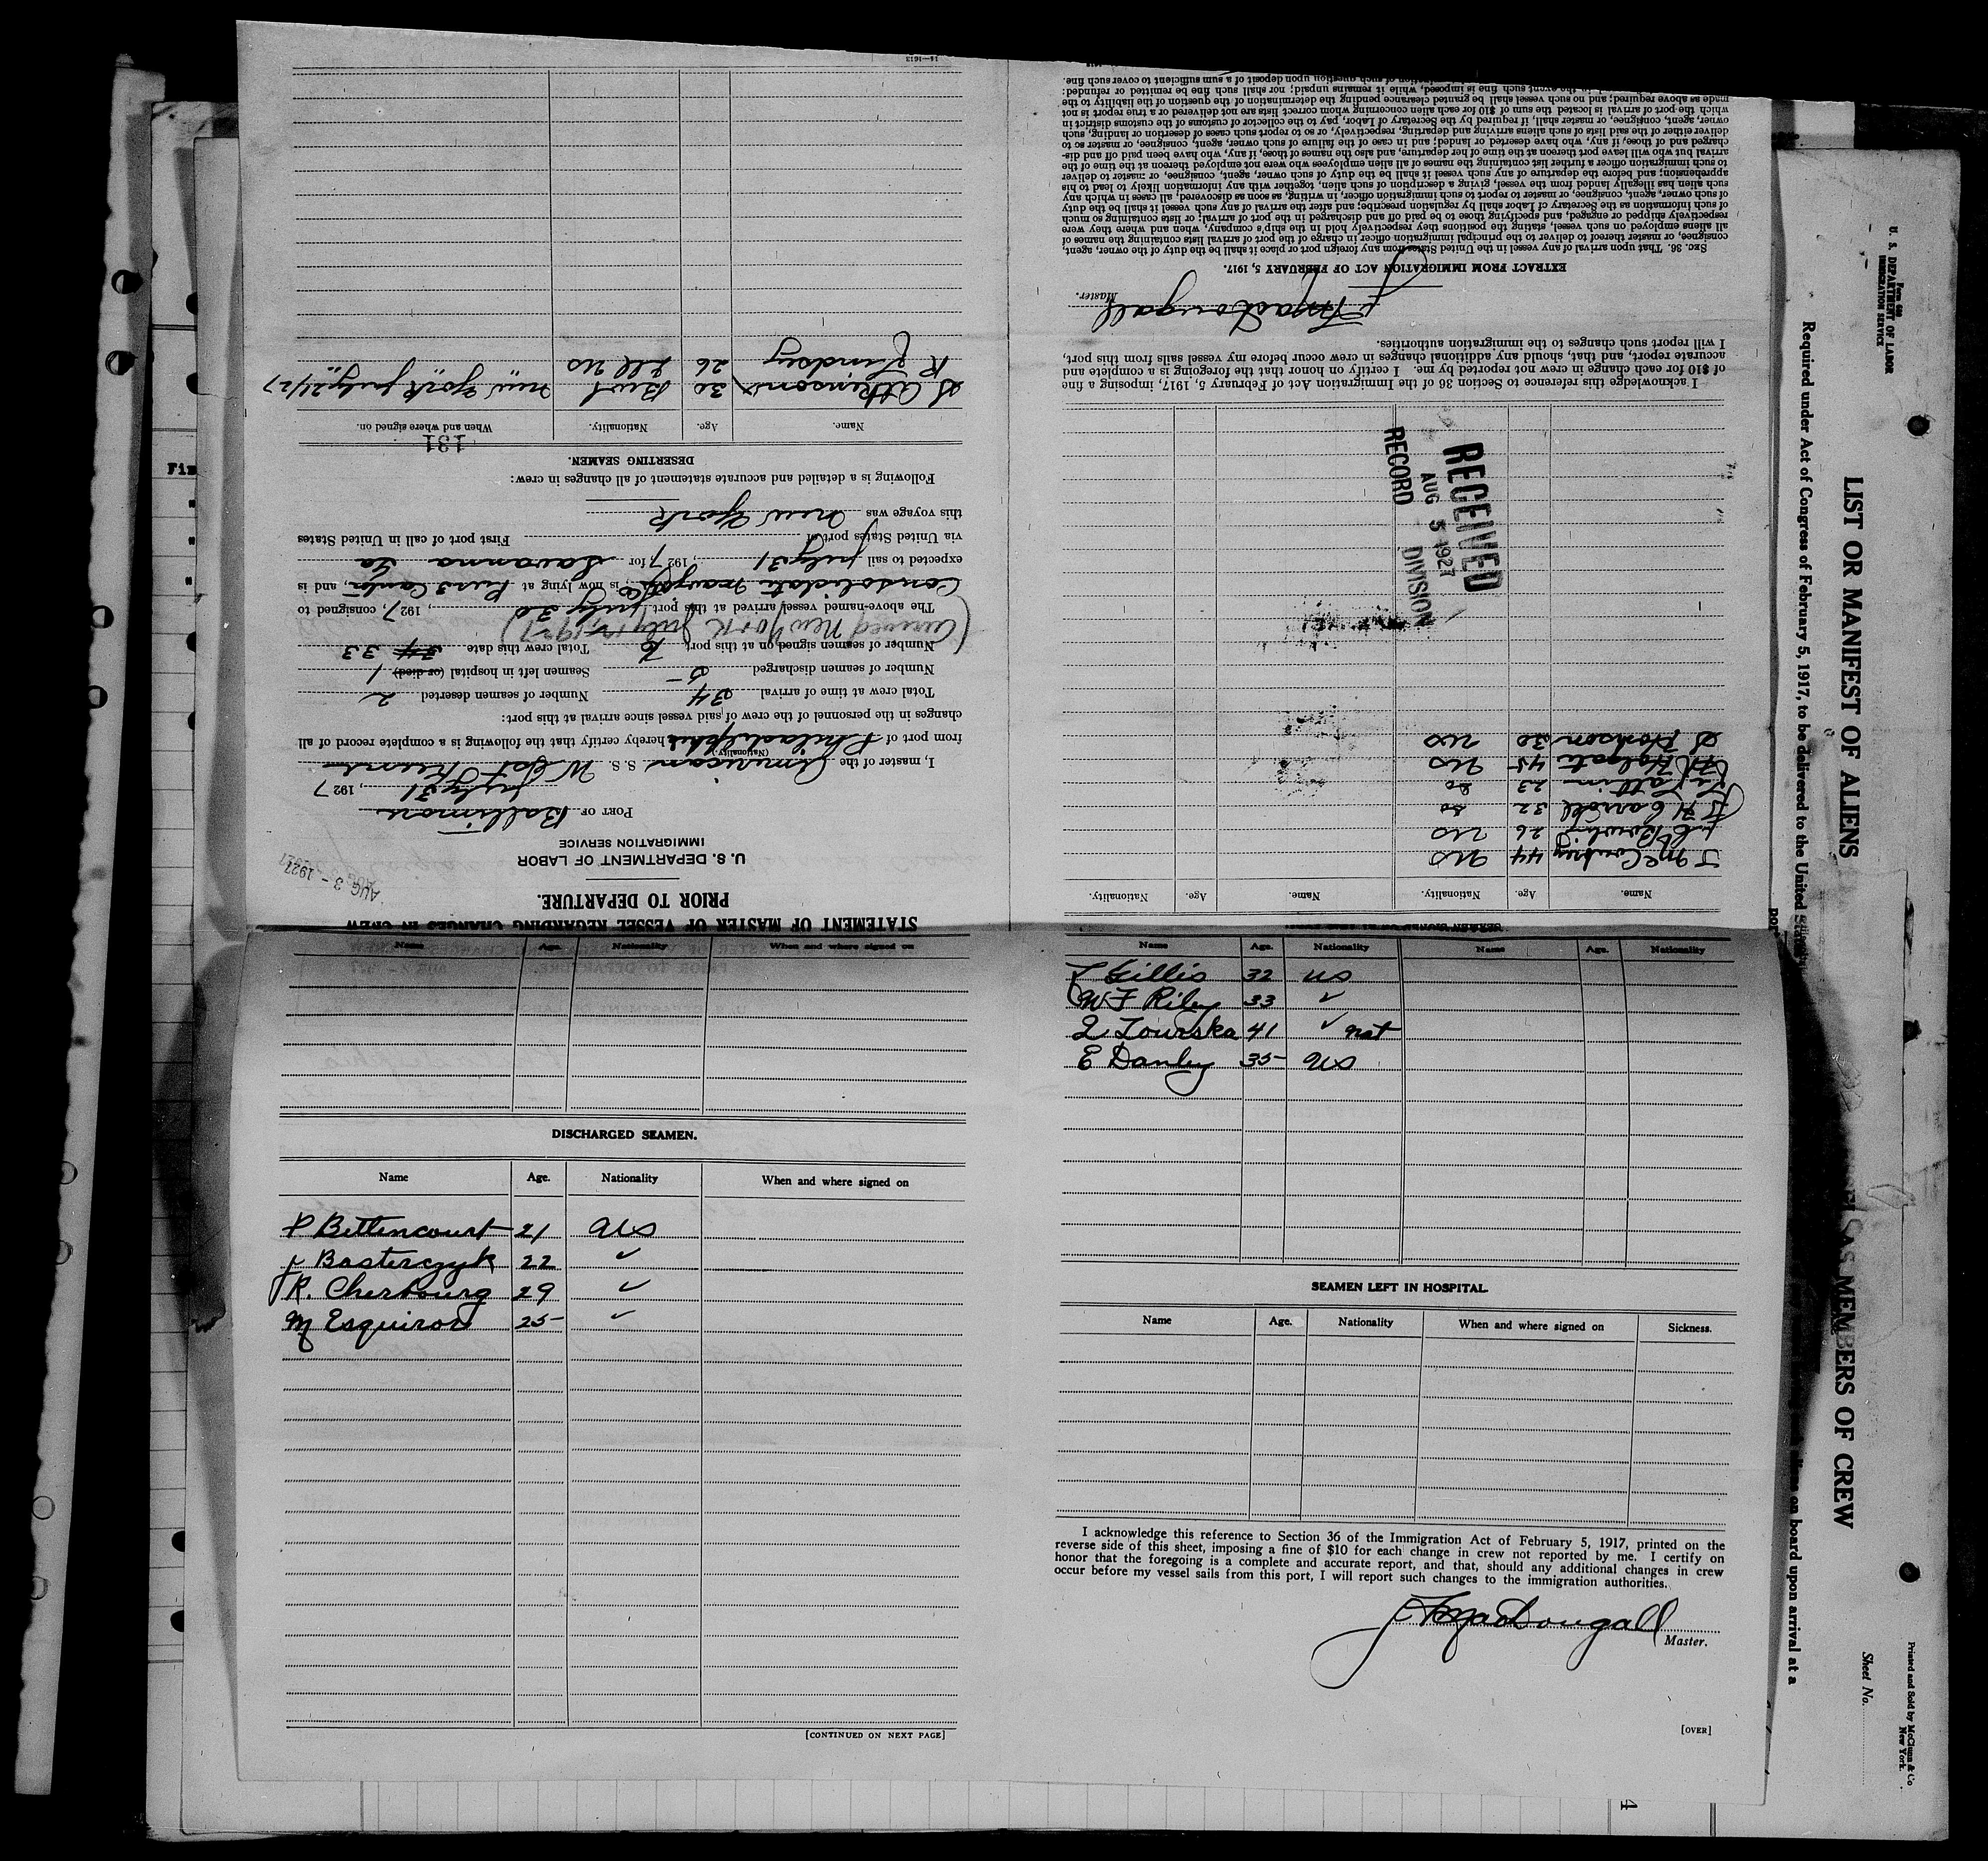 STATEMENT OF MASTER OF VESSEL REGARDING CHANGES IN CREW
PRIOR TO DEPARTURE.
U. S. DEPARTMENT OF LABOR
IMMIGRATION SERVICE
AUG 3 - 1927
PORT OF Baltimore
July 31, 1927
I, master of the American S. S. West
(Nationality)
from port of Philadelphia hereby certify that the following is a complete record of all
changes in the personnel of the crew of said vessel since arrival at this port:
Total crew at time of arrival 34 Number of seamen deserted 2
Number of seamen discharged 5 Seamen left in hospital (or died) 1
Number of seamen signed on at this port Total crew this date 34 33
(arrived New York July 12, 1927)
The above-named vessel arrived at this port July 30, 1927, consigned to
Consolidate Navigat Co, is now lying at Pier 3 Canton, and is
expected to sail July 31, 1927 for Savanna Ga
via United States port of First port of call in United States
this voyage was New York
Following is a detailed and accurate statement of all changes in crew:
DESERTING SEAMEN.
131
Name. Age. Nationality. When and where signed on.
S Atkinson 30 New York July 21/27
R Lindsey 26 US " "
14—1613
SEAMEN SIGNED ON AT THIS PORT
Name. Age. Nationality. Name. Age. Nationality.
J McCoubrey 44 US
Bowling 26 US
H Carroll 32 do
23 do
Holgate 45 US
S Hodson 30 US
RECEIVED
AUG 5 1927
RECORD DIVISION
I acknowledge this reference to Section 36 of the Immigration Act of February 5, 1917, imposing a fine
of $10 for each change in crew not reported by me. I certify on honor that the foregoing is a complete and
accurate report, and that, should any additional changes in crew occur before my vessel sails from this port,
I will report such changes to the immigration authorities.
MacDougall
Master.
EXTRACT FROM IMMIGRATION ACT OF FEBRUARY 5, 1917.
SEC. 36. That upon arrival of any vessel in the United States from any foreign port or place it shall be the duty of the owner, agent,
consignee, or master thereof to deliver to the principal immigration officer in charge of the port of arrival lists containing the names of
all aliens employed on such vessel, stating the positions they respectively hold in the ship's company, when and where they were
respectively shipped or engaged, and specifying those to be paid off and discharged in the port of arrival; or lists containing so much
of such information as the Secretary of Labor shall by regulation prescribe; and after the arrival of any such vessel it shall be the duty
of such owner, agent, consignee, or master to report to such immigration officer, in writing, as soon as discovered, all cases in which any
such alien has illegally landed from the vessel, giving a description of such alien, together with any information likely to lead to his
apprehension; and before the departure of any such vessel it shall be the duty of such owner, agent, consignee, or master to deliver
to such immigration officer a further list containing the names of all alien employees who were not employed thereon at the time of the
arrival but who will leave port thereon at the time of her departure, and also the names of those, if any, who have been paid off and dis-
charged and of those, if any, who have deserted or landed; and in case of the failure of such owner, agent, consignee, or master so to
deliver either of the said lists of such aliens arriving and departing, respectively, or so to report such cases of desertion or landing, such
owner, agent, consignee, or master shall, if required by the Secretary of Labor, pay to the collector of customs of the customs district in
which the port of arrival is located the sum of $10 for each alien concerning whom correct lists are not delivered or a true report is not
made as above required; and no such vessel shall be granted clearance pending the determination of the question of the liability to the
in the event such fine is imposed, while it remains unpaid; nor shall such fine be remitted or refunded:
of such question upon deposit of a sum sufficient to cover such fine.
Name Age. Nationality When and where signed on
DISCHARGED SEAMEN.
Name Age. Nationality When and where signed on
P Bettencourt 21 US
J Basterczyk 22 ✓
R. Cherbourg 29 ✓
M Esquirol 25 ✓
[CONTINUED ON NEXT PAGE]
Name Age. Nationality Name Age. Nationality
J Gillis 32 US
W F Riley 33 ✓
L Tourska 41 ✓ nat
E Danley 35 US
SEAMEN LEFT IN HOSPITAL.
Name Age. Nationality When and where signed on Sickness.
I acknowledge this reference to Section 36 of the Immigration Act of February 5, 1917, printed on the
reverse side of this sheet, imposing a fine of $10 for each change in crew not reported by me. I certify on
honor that the foregoing is a complete and accurate report, and that, should any additional changes in crew
occur before my vessel sails from this port, I will report such changes to the immigration authorities.
MacDougall
Master.
[OVER]
Form 680
U. S. DEPARTMENT OF LABOR
IMMIGRATION SERVICE
LIST OR MANIFEST OF ALIENS AS MEMBERS OF CREW
Required under Act of Congress of February 5, 1917, to be delivered to the United
on board upon arrival at a
Sheet No.
Printed and Sold by McClunn & Co
New York.